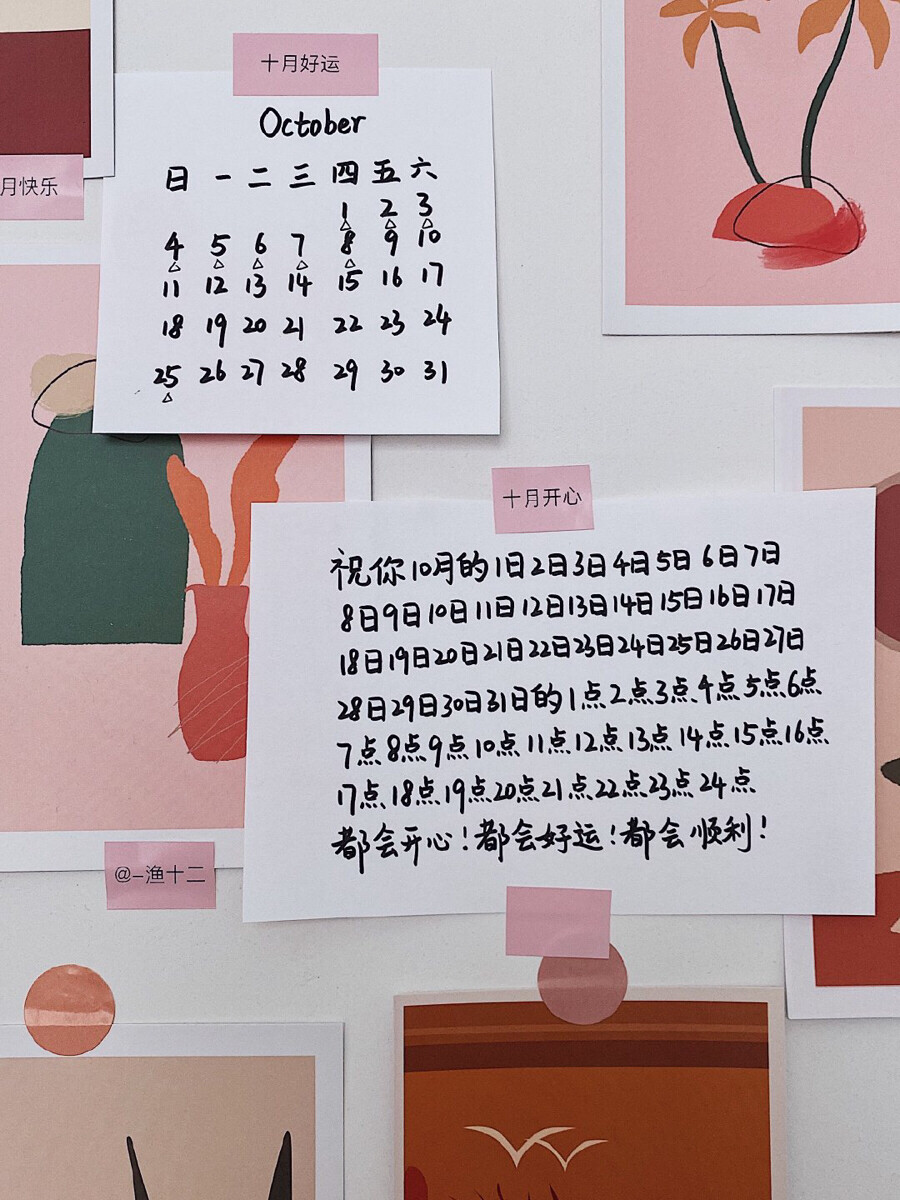 十月好运
October
日 一 二 三 四 五 六
1 2 3
4 5 6 7 8 9 10
11 12 13 14 15 16 17
18 19 20 21 22 23 24
25 26 27 28 29 30 31
月快乐
十月开心
祝你10月的1日2日3日4日5日6日7日
8日9日10日11日12日13日14日15日16日17日
18日19日20日21日22日23日24日25日26日27日
28日29日30日31日的1点2点3点4点5点6点
7点8点9点10点11点12点13点14点15点16点
17点18点19点20点21点22点23点24点
都会开心!都会好运!都会顺利!
@-渔十二